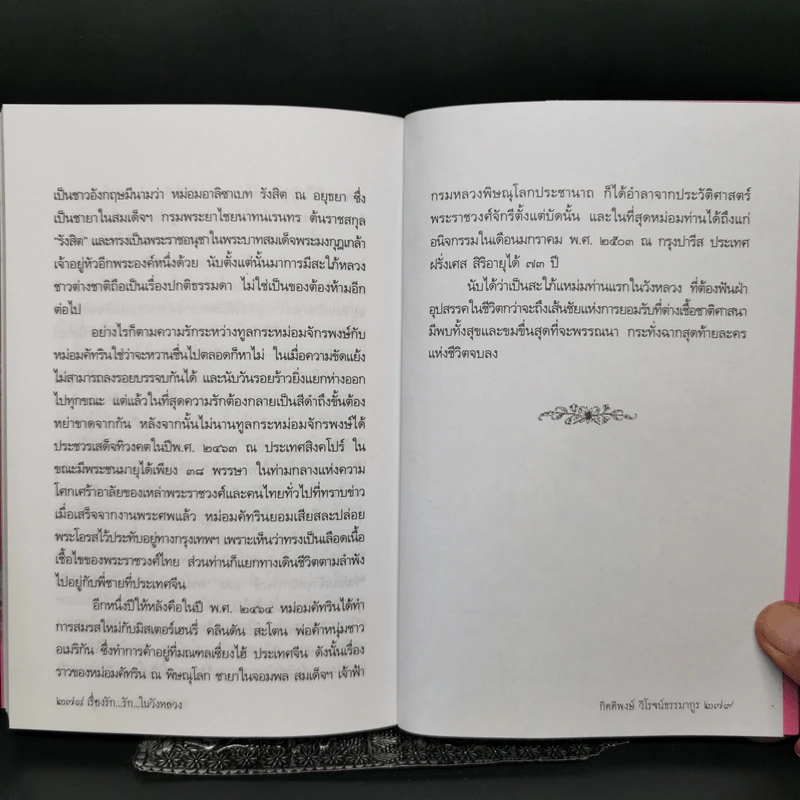 เป็นชาวอังกฤษมีนามว่า หม่อมอาลิซาเบท รังสิต ณ อยุธยา ซึ่ง
เป็นชายาในสมเด็จฯ กรมพระยาไชยนาทนเรนทร ต้นราชสกุล
"รังสิต" และทรงเป็นพระราชอนุชาในพระบาทสมเด็จพระมงกุฎเกล้า
เจ้าอยู่หัวอีกพระองค์หนึ่งด้วย นับตั้งแต่นั้นมาการมีสะใภ้หลวง
ชาวต่างชาติถือเป็นเรื่องปกติธรรมดา ไม่ใช่เป็นของต้องห้ามอีก
ต่อไป
อย่างไรก็ตามความรักระหว่างทูลกระหม่อมจักรพงษ์กับ
หม่อมคัทรินใช่ว่าจะหวานชื่นไปตลอดก็หาไม่ ในเมื่อความขัดแย้ง
ไม่สามารถลงรอยบรรจบกันได้ และนับวันรอยร้าวยิ่งแยกห่างออก
ไปทุกขณะ แต่แล้วในที่สุดความรักต้องกลายเป็นสีดำถึงขั้นต้อง
หย่าขาดจากกัน หลังจากนั้นไม่นานทูลกระหม่อมจักรพงษ์ได้
ประชวรเสด็จทิวงคตในปีพ.ศ. ๒๔๖๓ ณ ประเทศสิงคโปร์ ใน
ขณะมีพระชนมายุได้เพียง ๓๘ พรรษา ในท่ามกลางแห่งความ
โศกเศร้าอาลัยของเหล่าพระราชวงศ์และคนไทยทั่วไปที่ทราบข่าว
เมื่อเสร็จจากงานพระศพแล้ว หม่อมคัทรินยอมเสียสละปล่อย
พระโอรสไว้ประทับอยู่ทางกรุงเทพฯ เพราะเห็นว่าทรงเป็นเลือดเนื้อ
เชื้อไขของพระราชวงศ์ไทย ส่วนท่านก็แยกทางเดินชีวิตตามลำพัง
ไปอยู่กับพี่ชายที่ประเทศจีน
อีกหนึ่งปีให้หลังคือในปี พ.ศ. ๒๔๖๔ หม่อมคัทรินได้ทำ
การสมรสใหม่กับมิสเตอร์เฮนรี่ คลินตัน สะโตน พ่อค้าหนุ่มชาว
อเมริกัน ซึ่งทำการค้าอยู่ที่มณฑลเซี่ยงไฮ้ ประเทศจีน ดังนั้นเรื่อง
ราวของหม่อมคัทริน ณ พิษณุโลก ชายาในจอมพล สมเด็จฯ เจ้าฟ้า
๒๗๘ เรื่องรัก...รัก...ในวังหลวง
กรมหลวงพิษณุโลกประชานาถ ก็ได้อำลาจากประวัติศาสตร์
พระราชวงศ์จักรีตั้งแต่บัดนั้น และในที่สุดหม่อมท่านได้ถึงแก่
อนิจกรรมในเดือนมกราคม พ.ศ. ๒๕๐๓ ณ กรุงปารีส ประเทศ
ฝรั่งเศส สิริอายุได้ ๗๓ ปี
นับได้ว่าเป็นสะใภ้แหม่มท่านแรกในวังหลวง ที่ต้องฟันฝ่า
อุปสรรคในชีวิตกว่าจะถึงเส้นชัยแห่งการยอมรับที่ต่างเชื้อชาติศาสนา
มีพบทั้งสุขและขมขื่นสุดที่จะพรรณนา กระทั่งฉากสุดท้ายละคร
แห่งชีวิตจบลง
กิตติพงษ์ วิโรจน์ธรรมากูร ๒๗๙